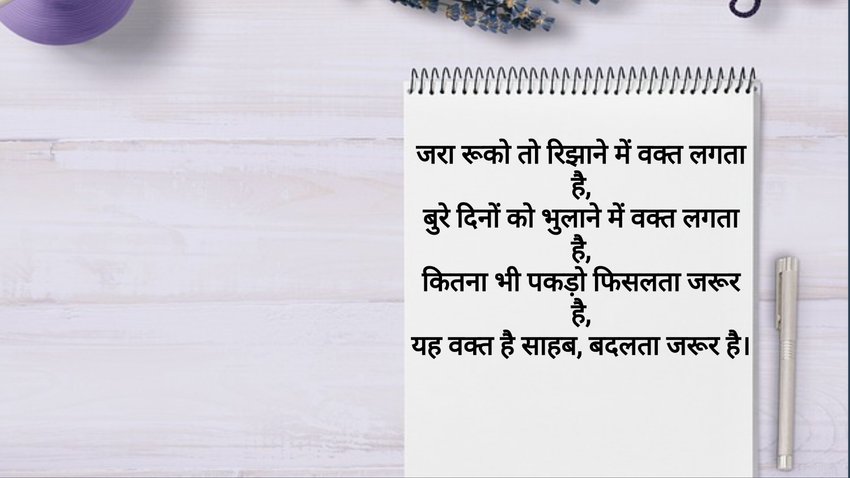 जरा रूको तो रिझाने में वक्त लगता
है,
बुरे दिनों को भुलाने में वक्त लगता
है,
कितना भी पकड़ो फिसलता जरूर
है,
यह वक्त है साहब, बदलता जरूर है।